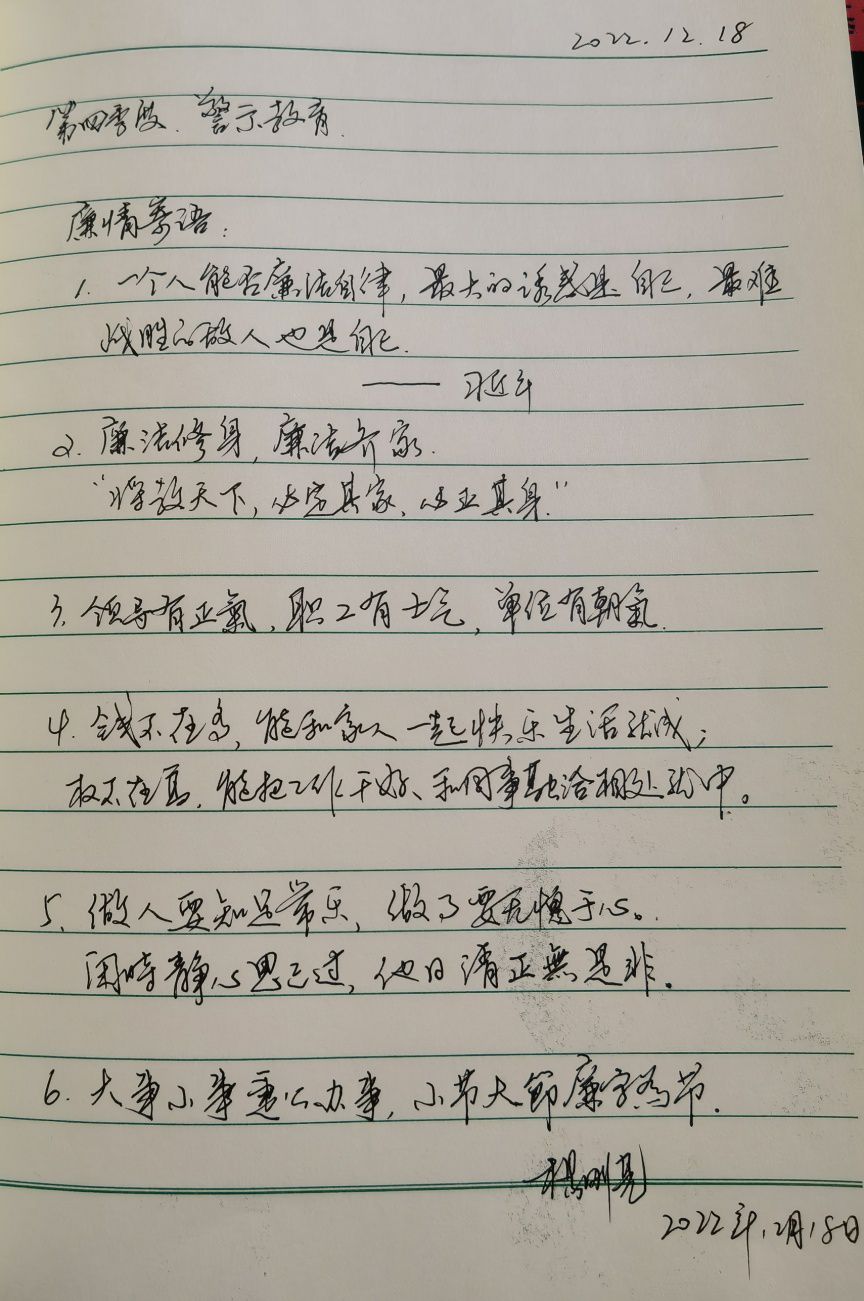 2022.12.18
第四季度、警示教育.
廉情寄语:
1. 一个人能否廉洁自律,最大的诱惑是自己,最难
战胜的敌人也是自己.
—— 习近平
2. 廉洁修身,廉洁齐家.
“将教天下,必定其家,必正其身.”
3. 领导有正氣,职工有士气,单位有朝氣.
4. 钱不在多,能和家人一起快乐生活就成;
权不在高,能把工作干好、和同事融洽相处就中。
5. 做人要知足常乐,做了要无愧于心。
闲時静心思己过,他日清正無是非.
6. 大事小事秉公办事,小节大節廉字為节.
2022年12月18日